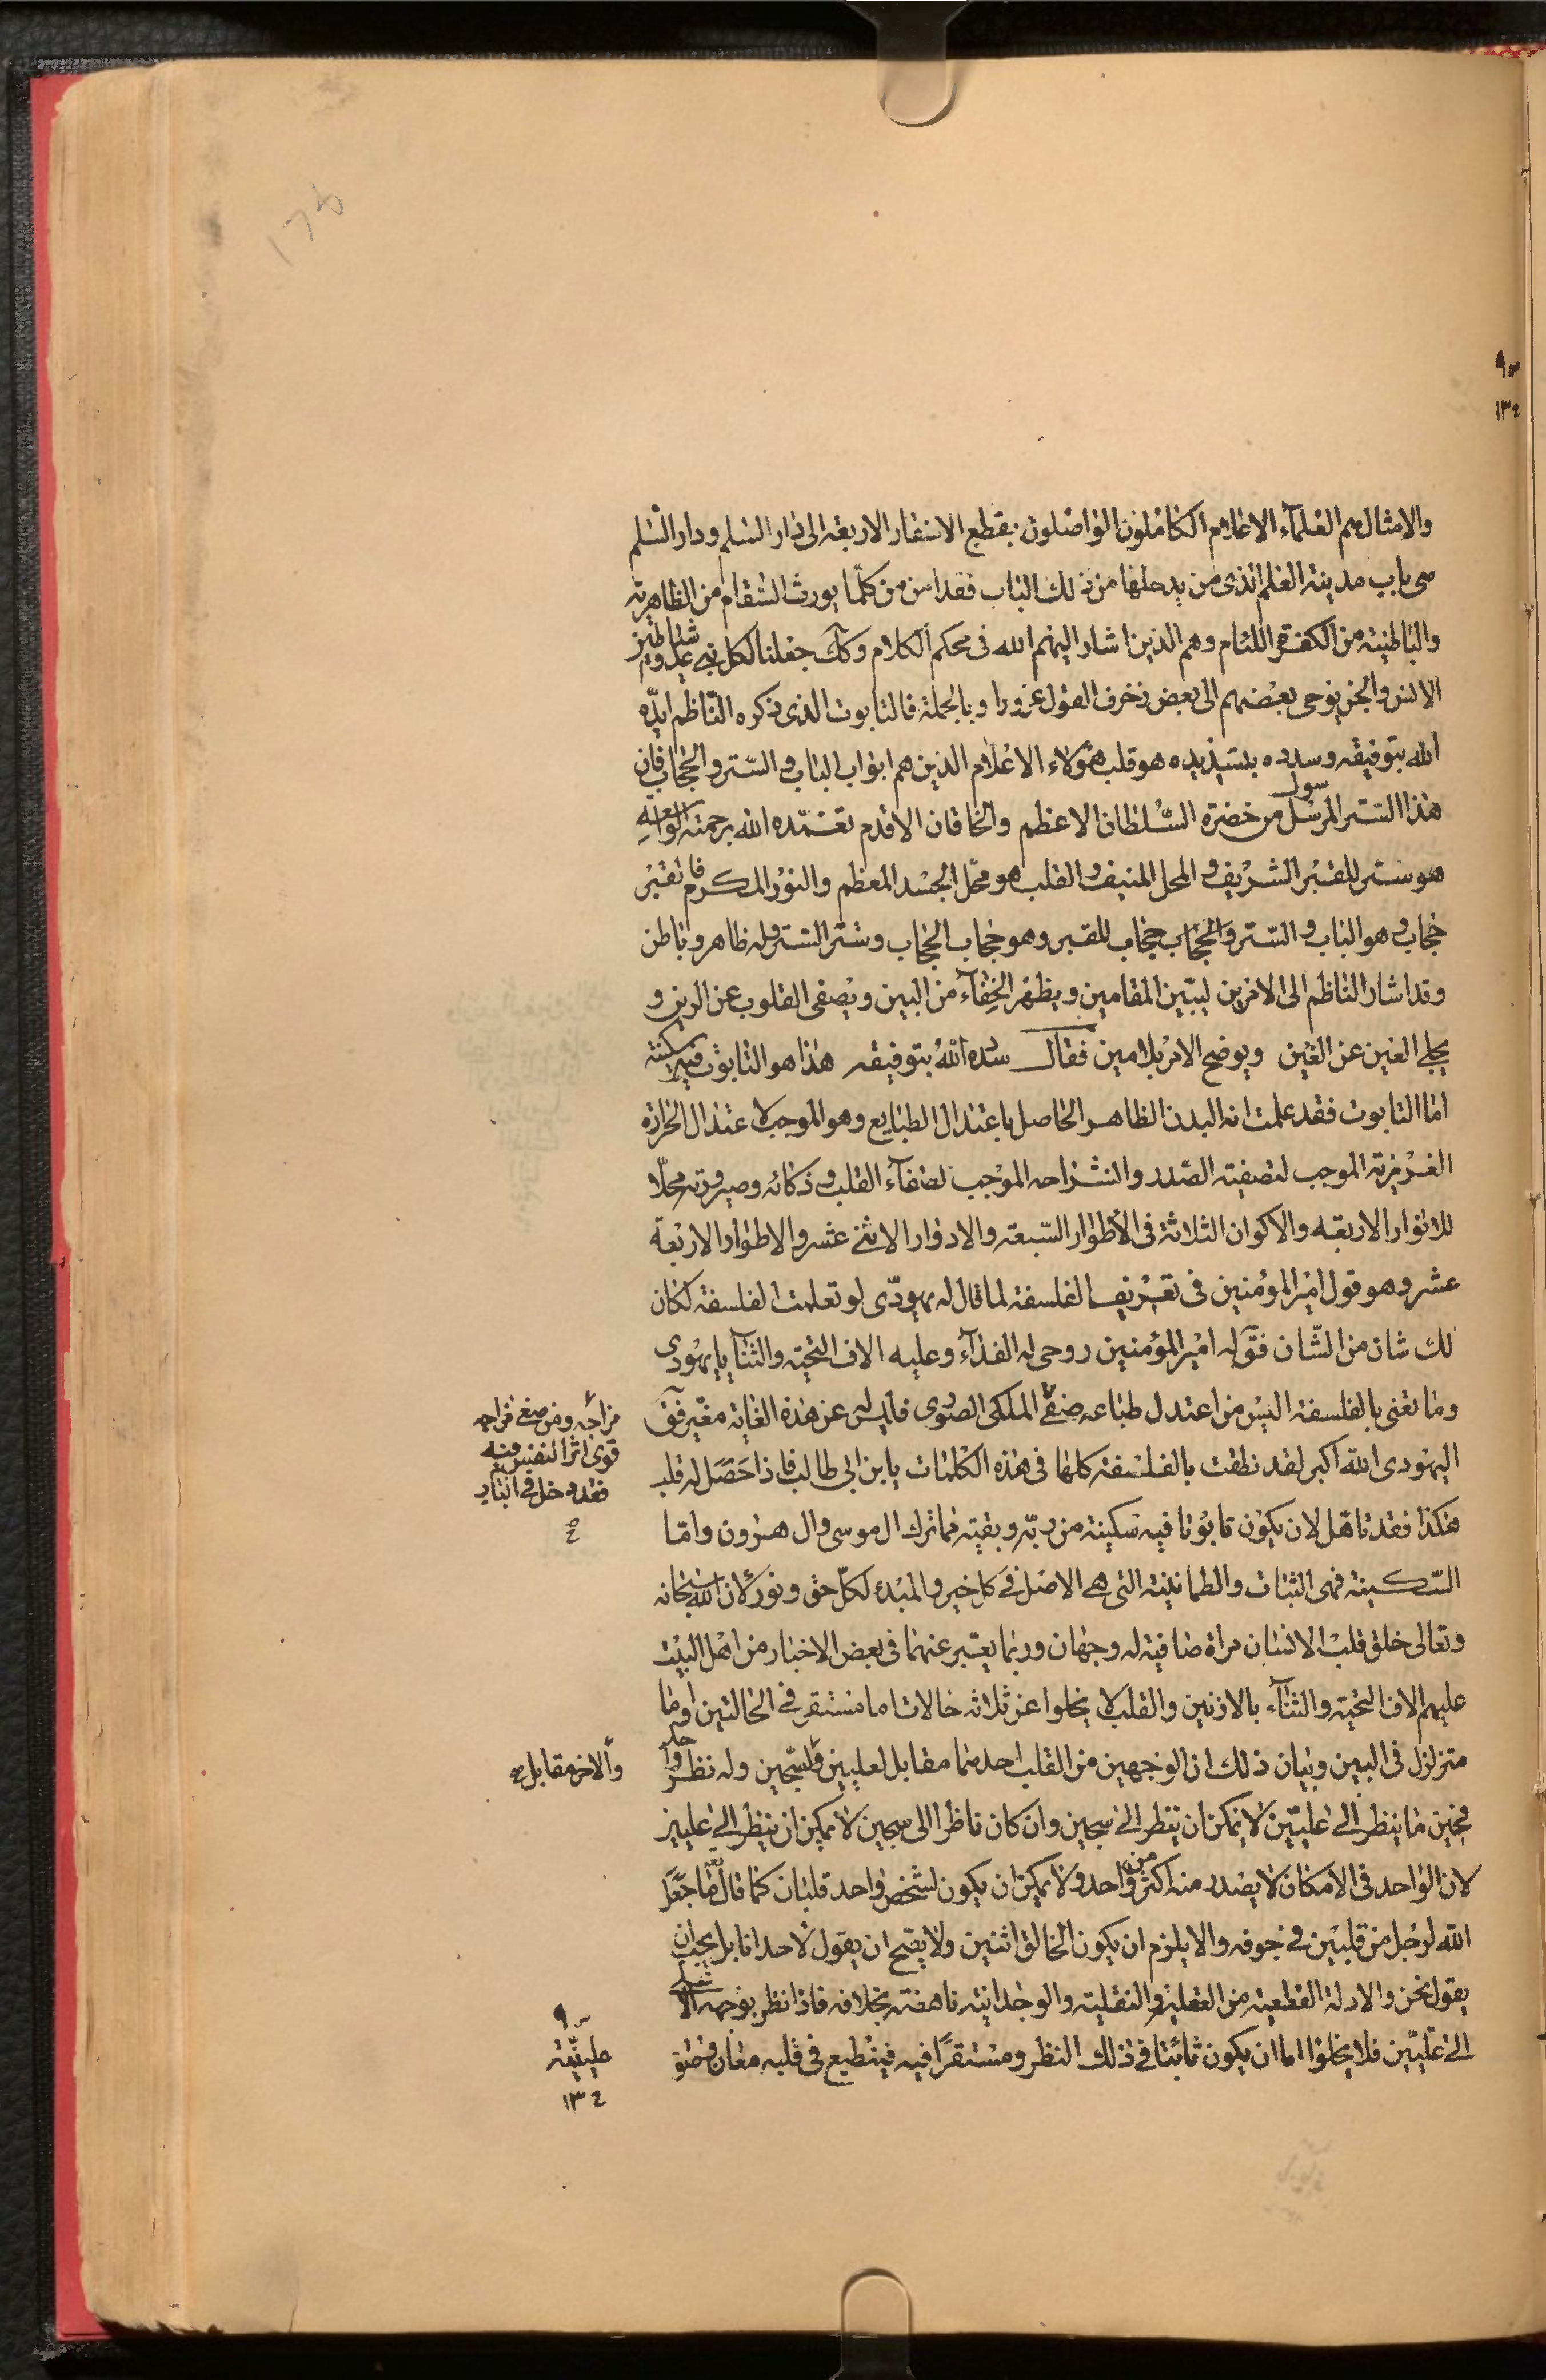 والامثال هم العلمآء الاعلام الكاملون الواصلون بقطع الاسفار الاربعة الى دار السلم ودار السّلم
هى باب مدينة العلم الذى من يدخلها من ذلك الباب فقد امن من كلّما يورث السّقام من الظاهرية
والباطنية من الكفرة اللئام وهم الذين اشار اليهم الله فى محكم الكلام وكك جعلنا لكل نبى عدوا شياطين
الانس والجن يوحى بعضهم الى بعض زخرف القول غرورا وبالجملة فالتابوت الذى ذكره النّاظم ايدّه
الله بتوفيقه وسدده بتسديده هو قلب هؤلاء الاعلام الذين هم ابواب الباب والسّتر والحجاب فان
هذا السّتر المرسول من حضرة السّلطان الاعظم والخاقان الاقدم تغمّده الله برحمته الواسعة
هو ستر للقبر الشريف والمحل المنيف والقلب هو محّل الجسد المعظم والنور المكرم فالقبر
حجاب وهو الباب والسّتر والحجاب حجاب للقبر وهو حجاب الحجاب وستر السّتر وله ظاهر وباطن
وقد اشار الناظم الى الامرين ليبّين المقامين ويظهر الخفآء من البين ويصفى القلوب عن الرين و
يجلى العين عن الغين ويوضح الامر بلا مين فقال سدده الله بتوفيقه هذا هو التابوت فيه سكينة
امّا التابوت فقد علمت انه البدن الظاهر الحاصل باعتدال الطبايع وهو الموجب لاعتدال الحرارة
الغريزية الموجب لتصفية الصّدر وانشراحه الموجب لصفآء القلب وذكائه وصيرورته محلّا
للانوار الاربعة والاكوان الثلاثة فى الأطوار السّبعة والادوار الاثنى عشر والاطوار الاربعة
عشر وهو قول امير المؤمنين فى تعريف الفلسفة لما قال له يهودّى لو تعلمت الفلسفة لكان
لك شان من الشّان فقآل له امير المؤمنين روحى له الفدآء وعليه الاف التحية والثنآ يا يهودى
وما تعنى بالفلسفة اليس من اعتدل طباعه صفى الملكى الصورى فليس له عن هذه الغاية مغيّر فقآل
اليهودى الله اكبر لقد نطقت بالفلسفة كلها فى هذه الكلمات يا بن ابى طالب فاذا حَصَل له قلب
هكذا فقد تاهّل لان يكون تابوتا فيه سكينة من ربّه وبقية مما ترك ال موسى وال هرون وامّا
السّكينة فهى الثبات والطمانينة التى هى الاصل فى كل خير والمبدء لكلّ حق ونور لان الله سبحانه
وتعالى خلق قلب الانسان مراة صافية له وجهان وربما يعبّر عنهما فى بعض الاخبار من اهل البيت
عليهم الاف التحية والثنآء بالاذنين والقلب لا يخلوا عن ثلاثة حالات اما مستقر فى الحالتين او ما
متزلزل فى البين وبيان ذلك ان الوجهين من القلب احدهما مقابل لعليين والاخر مقابل لسّجين وله نظر واحد
فحين ما ينظر الى عليّين لا يمكن ان ينظر الى سجين وان كان ناظرا الى سجين لا يمكن ان ينظر الى عليين
لان الواحد فى الامكان لا يصدر منه اكثر من واحد ولا يمكن ان يكون لشخص واحد قلبان كما قال تعالى ما جَعَل
الله لرجل من قلبين فى جوفه والا يلزم ان يكون الخالق اثنين ولا يصّح ان يقول لاحد انا بل يجب ان
يقول نحن والادلة القطعية من العقلية والنقلية والوجدانية ناهضة بخلافه فاذا نظر بوجهه الا
الى عليّين فلا يخلوا اما ان يكون ثابتا فى ذلك النظر ومستقرًا فيه فينطبع فى قلبه معان وصور
مزاجه ومن صفى مزاجه
قوى اثر النفس فيه
فقد دخل فى الباب
والاخر مقابل
عليينه
١٣٤
١٣٤